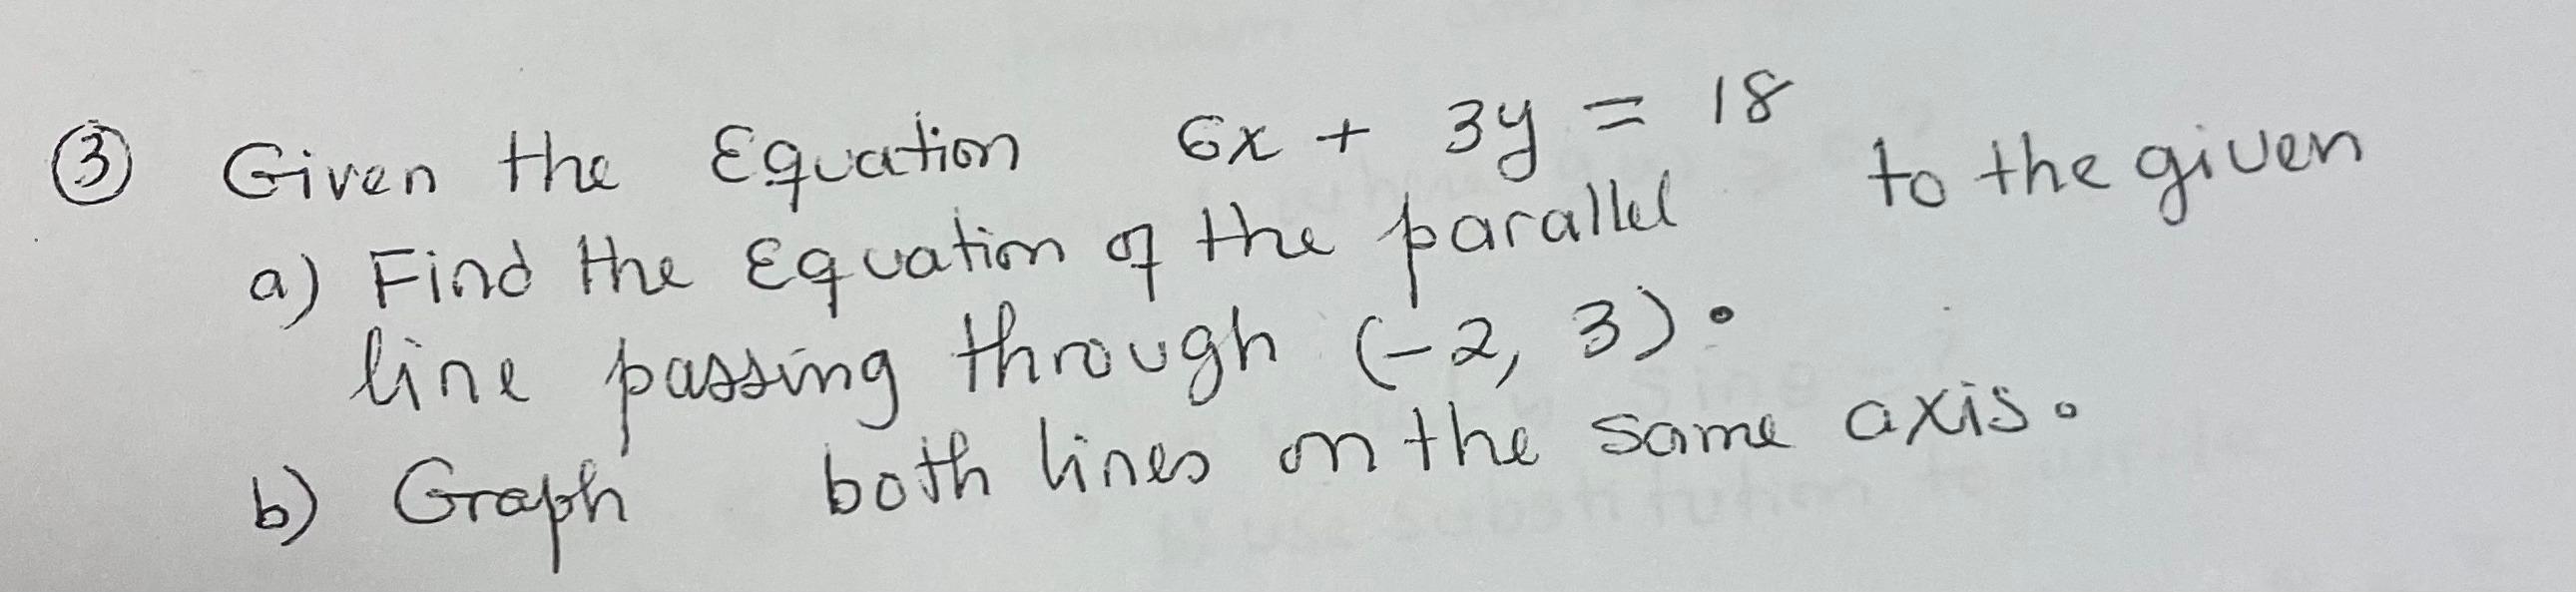 ③ Given the Equation 6x + 3y = 18
a) Find the Equation of the parallel to the given
line passing through (-2, 3).
b) Graph both lines on the same axis.